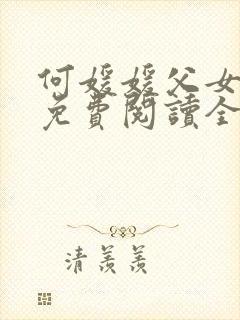 何媛媛父女
免費閱讀全
清羨羨